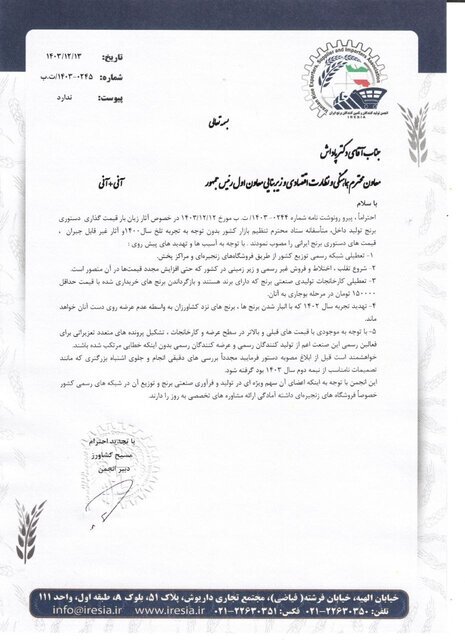 تاریخ: ۱۴۰۳/۱۲/۱۳
شماره: ۱۴۰۳-۰۲۴۵/ت.ب
پیوست: ندارد
Iranian Rice Exporters, Supplier and Importers Association
انجمن تولید کنندگان و تامین کنندگان برنج ایران
IRESIA
بسمه تعالی
جناب آقای دکتر پاداش
معاون محترم هماهنگی و نظارت اقتصادی و زیربنایی معاون اول رئیس جمهور
آنی+آنی
با سلام
احتراماً، پیرو رونوشت نامه شماره ۰۲۴۴-۱۴۰۳/ت.ب مورخ ۱۴۰۳/۱۲/۱۲ در خصوص آثار زیان بار قیمت گذاری دستوری
برنج تولید داخل، متأسفانه ستاد محترم تنظیم بازار کشور بدون توجه به تجربه تلخ سال۱۴۰۰و آثار غیر قابل جبران ،
قیمت های دستوری برنج ایرانی را مصوب نمودند . با توجه به آسیب ها و تهدید های پیش روی :
۱- تعطیلی شبکه رسمی توزیع کشور از طریق فروشگاه‌های زنجیره‌ای و مراکز پخش.
۲- شروع تقلب ، اختلاط و فروش غیر رسمی و زیر زمینی در کشور که حتی افزایش مجدد قیمت‌ها در آن متصور است.
۳- تعطیلی کارخانجات تولیدی صنعتی برنج که دارای برند هستند و بازگرداندن برنج های خریداری شده با قیمت حداقل
۱۵۰۰۰۰۰ تومان در مرحله بوجاری به آنان.
۴- تهدید تجربه سال ۱۴۰۲ که با انبار شدن برنج ها ، برنج های نزد کشاورزان به واسطه عدم عرضه روی دست آنان خواهد
ماند.
۵- با توجه به موجودی با قیمت های قبلی و بالاتر در سطح عرضه و کارخانجات ، تشکیل پرونده های متعدد تعزیراتی برای
فعالین رسمی این صنعت اعم از تولید کنندگان رسمی و عرضه کنندگان رسمی بدون اینکه خطایی مرتکب شده باشند.
خواهشمند است قبل از ابلاغ مصوبه دستور فرمایید مجدداً بررسی های دقیقی انجام و جلوی اشتباه بزرگتری که مانند
تصمیمات نامناسب از نیمه دوم سال ۱۴۰۳ بود گرفته شود.
این انجمن با توجه به اینکه اعضای آن سهم ویژه ای در تولید و فرآوری صنعتی برنج و توزیع آن در شبکه های رسمی کشور
خصوصاً فروشگاه های زنجیره‌ای داشته آمادگی ارائه مشاوره های تخصصی به روز را دارند.
با تجدید احترام
مسیح کشاورز
دبیر انجمن
خیابان الهیه، خیابان فرشته( فیاضی)، مجتمع تجاری داریوش، پلاک ۵۱، بلوک A، طبقه اول، واحد ۱۱۱
تلفن: ۲۲۶۳۰۳۵۰-۰۲۱ فکس: ۲۲۶۳۰۳۵۱-۰۲۱ www.iresia.ir info@iresia.ir